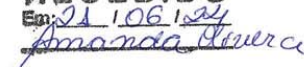 Em: 21 / 06 / 24
Amanda Oliveira